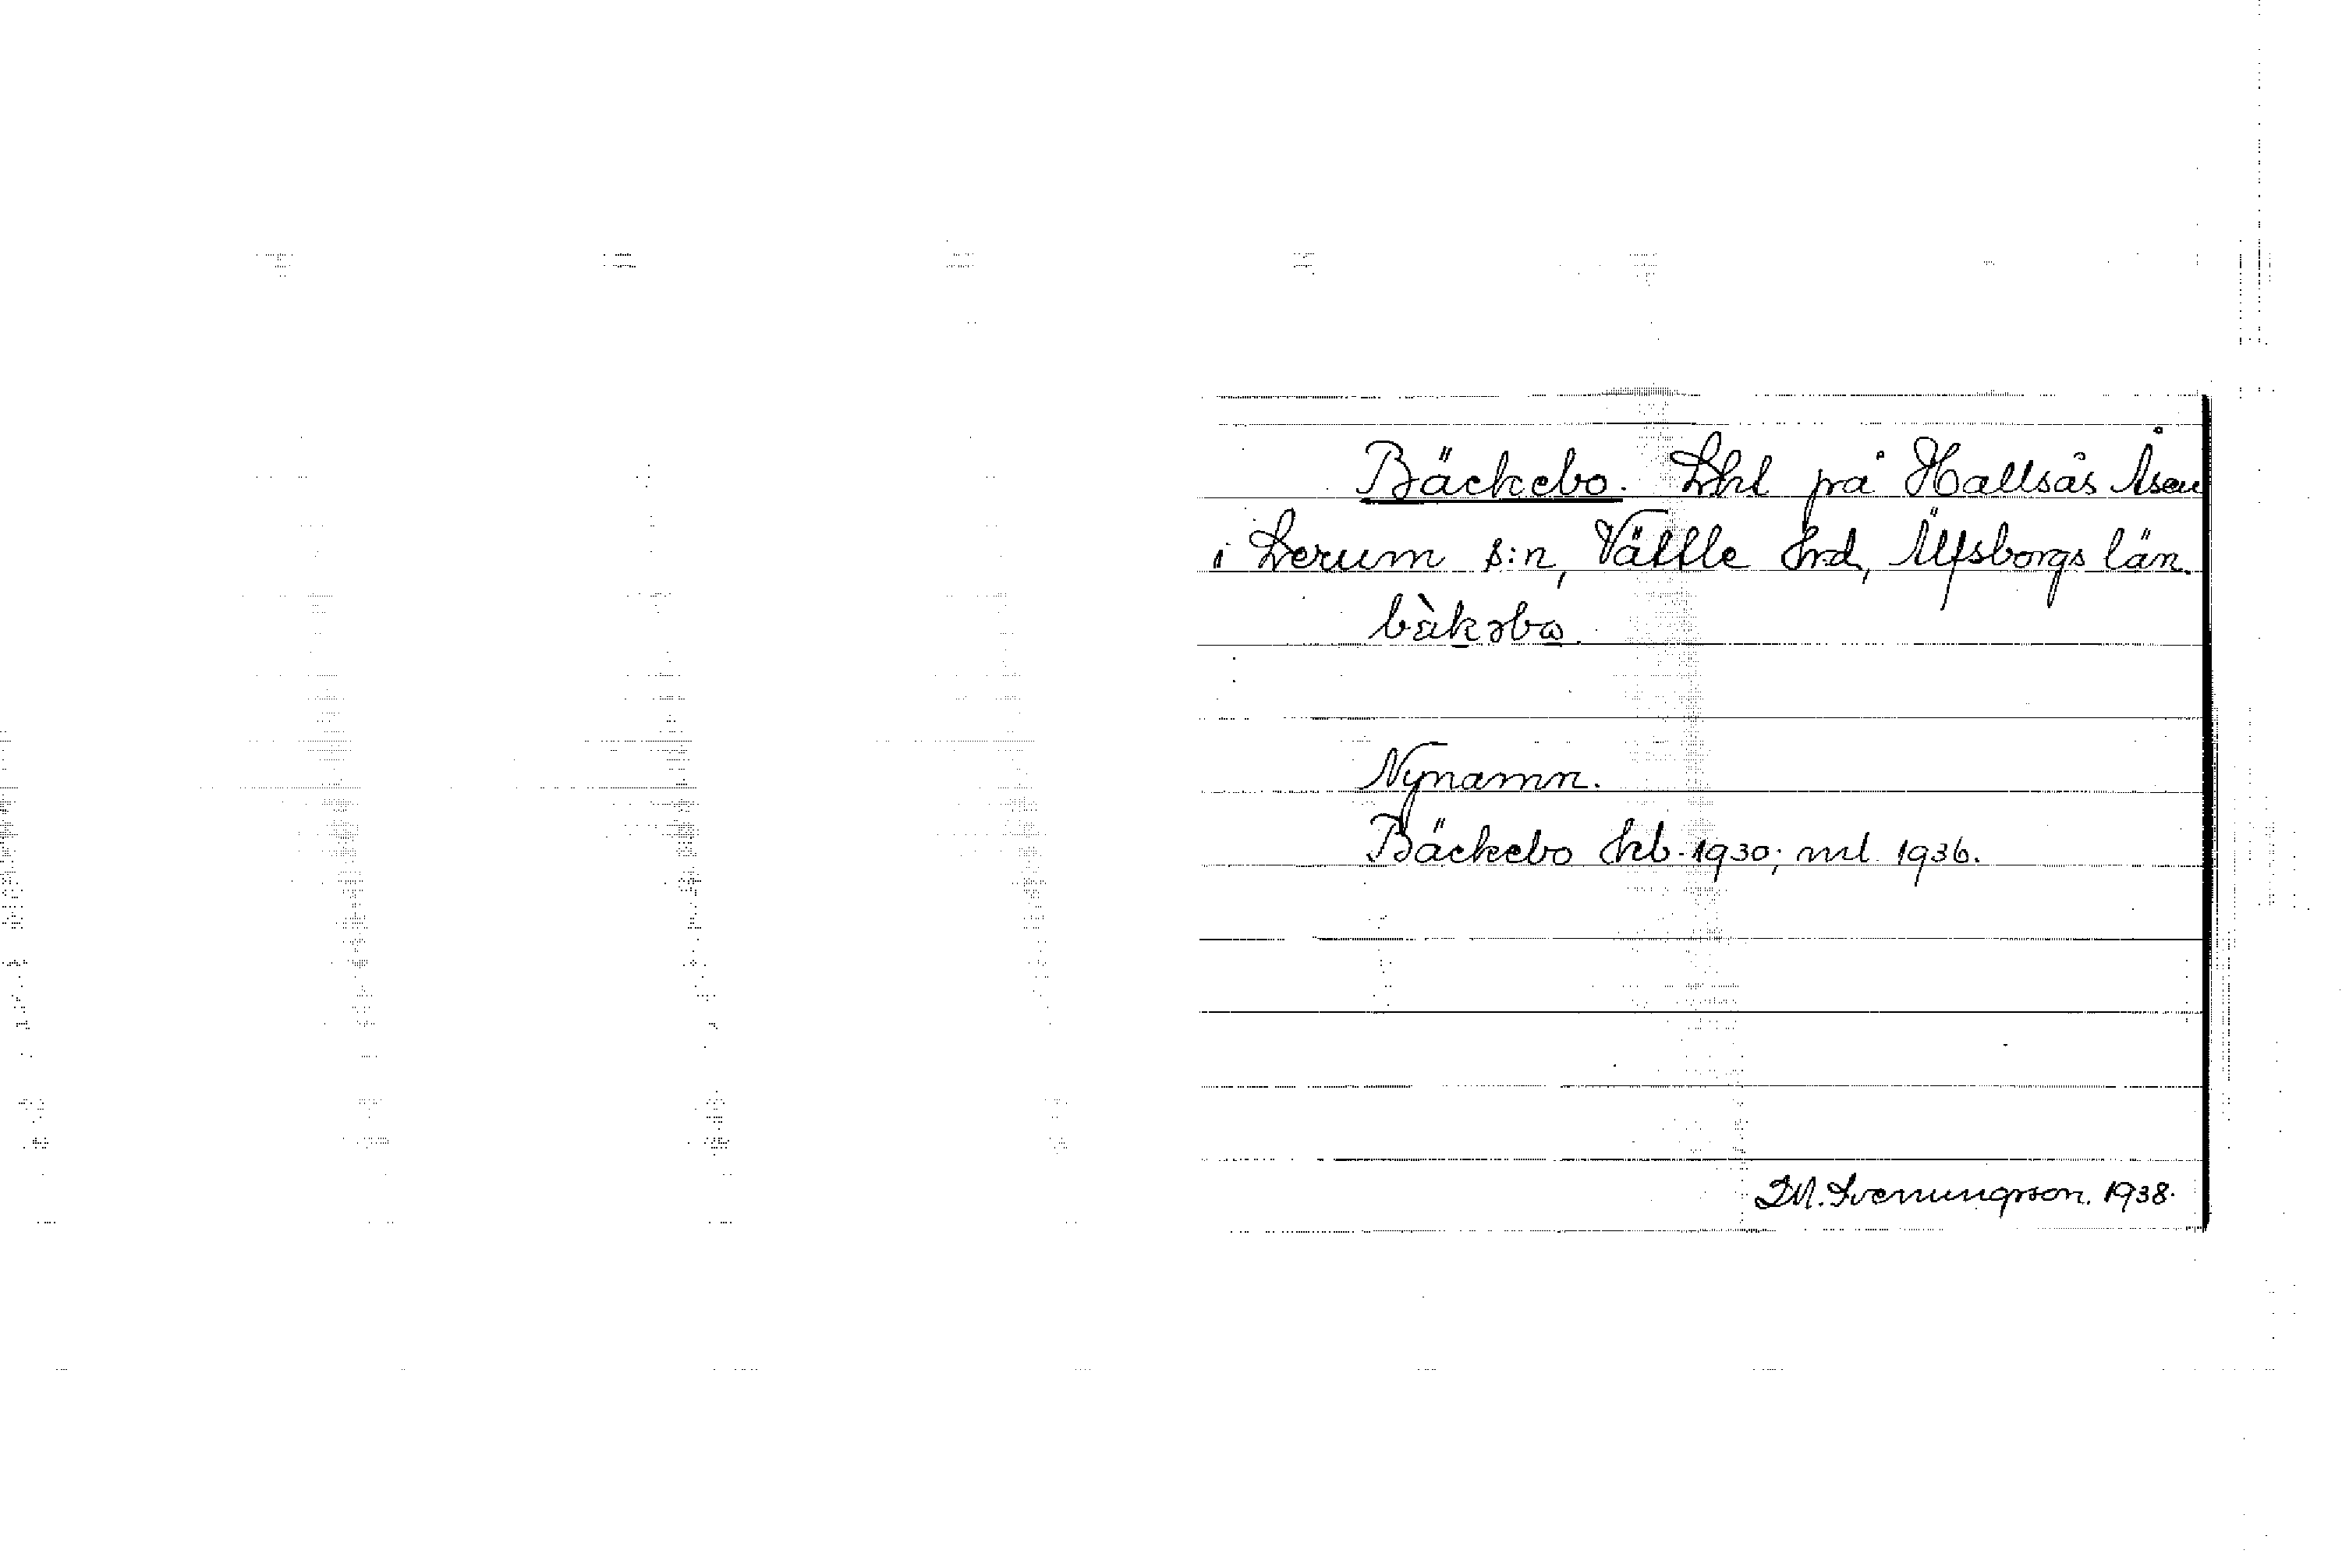 Bäckebo. Lht på Hallsås Åsen
i Lerum s:n, Vättle hrd, Älfsborgs län.
bàkəbɷ.
Nynamn.
Bäckebo hb. 1930; ml. 1936.
D.M. Svenungsson. 1938.